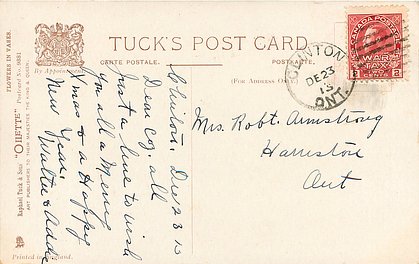 TUCK'S POST CARD
CARTE POSTALE.
POSTKARTE.
(For Address Only)
By Appointment
FLOWERS IN VASES.
Postcard No. 9881
Raphael Tuck & Sons' "OILETTE"
ART PUBLISHERS TO THEIR MAJESTIES THE KING & QUEEN.
Printed in England.
CANADA POSTAGE
WAR
TAX
2 2
CLINTON
DE 23
15
ONT.
Clinton, Dec 23 15
Dear all
Just a line to wish
you all a Merry
Xmas & a Happy
New Year.
Walter & Addie
Mrs. Robt. Armstrong
Harriston
Ont